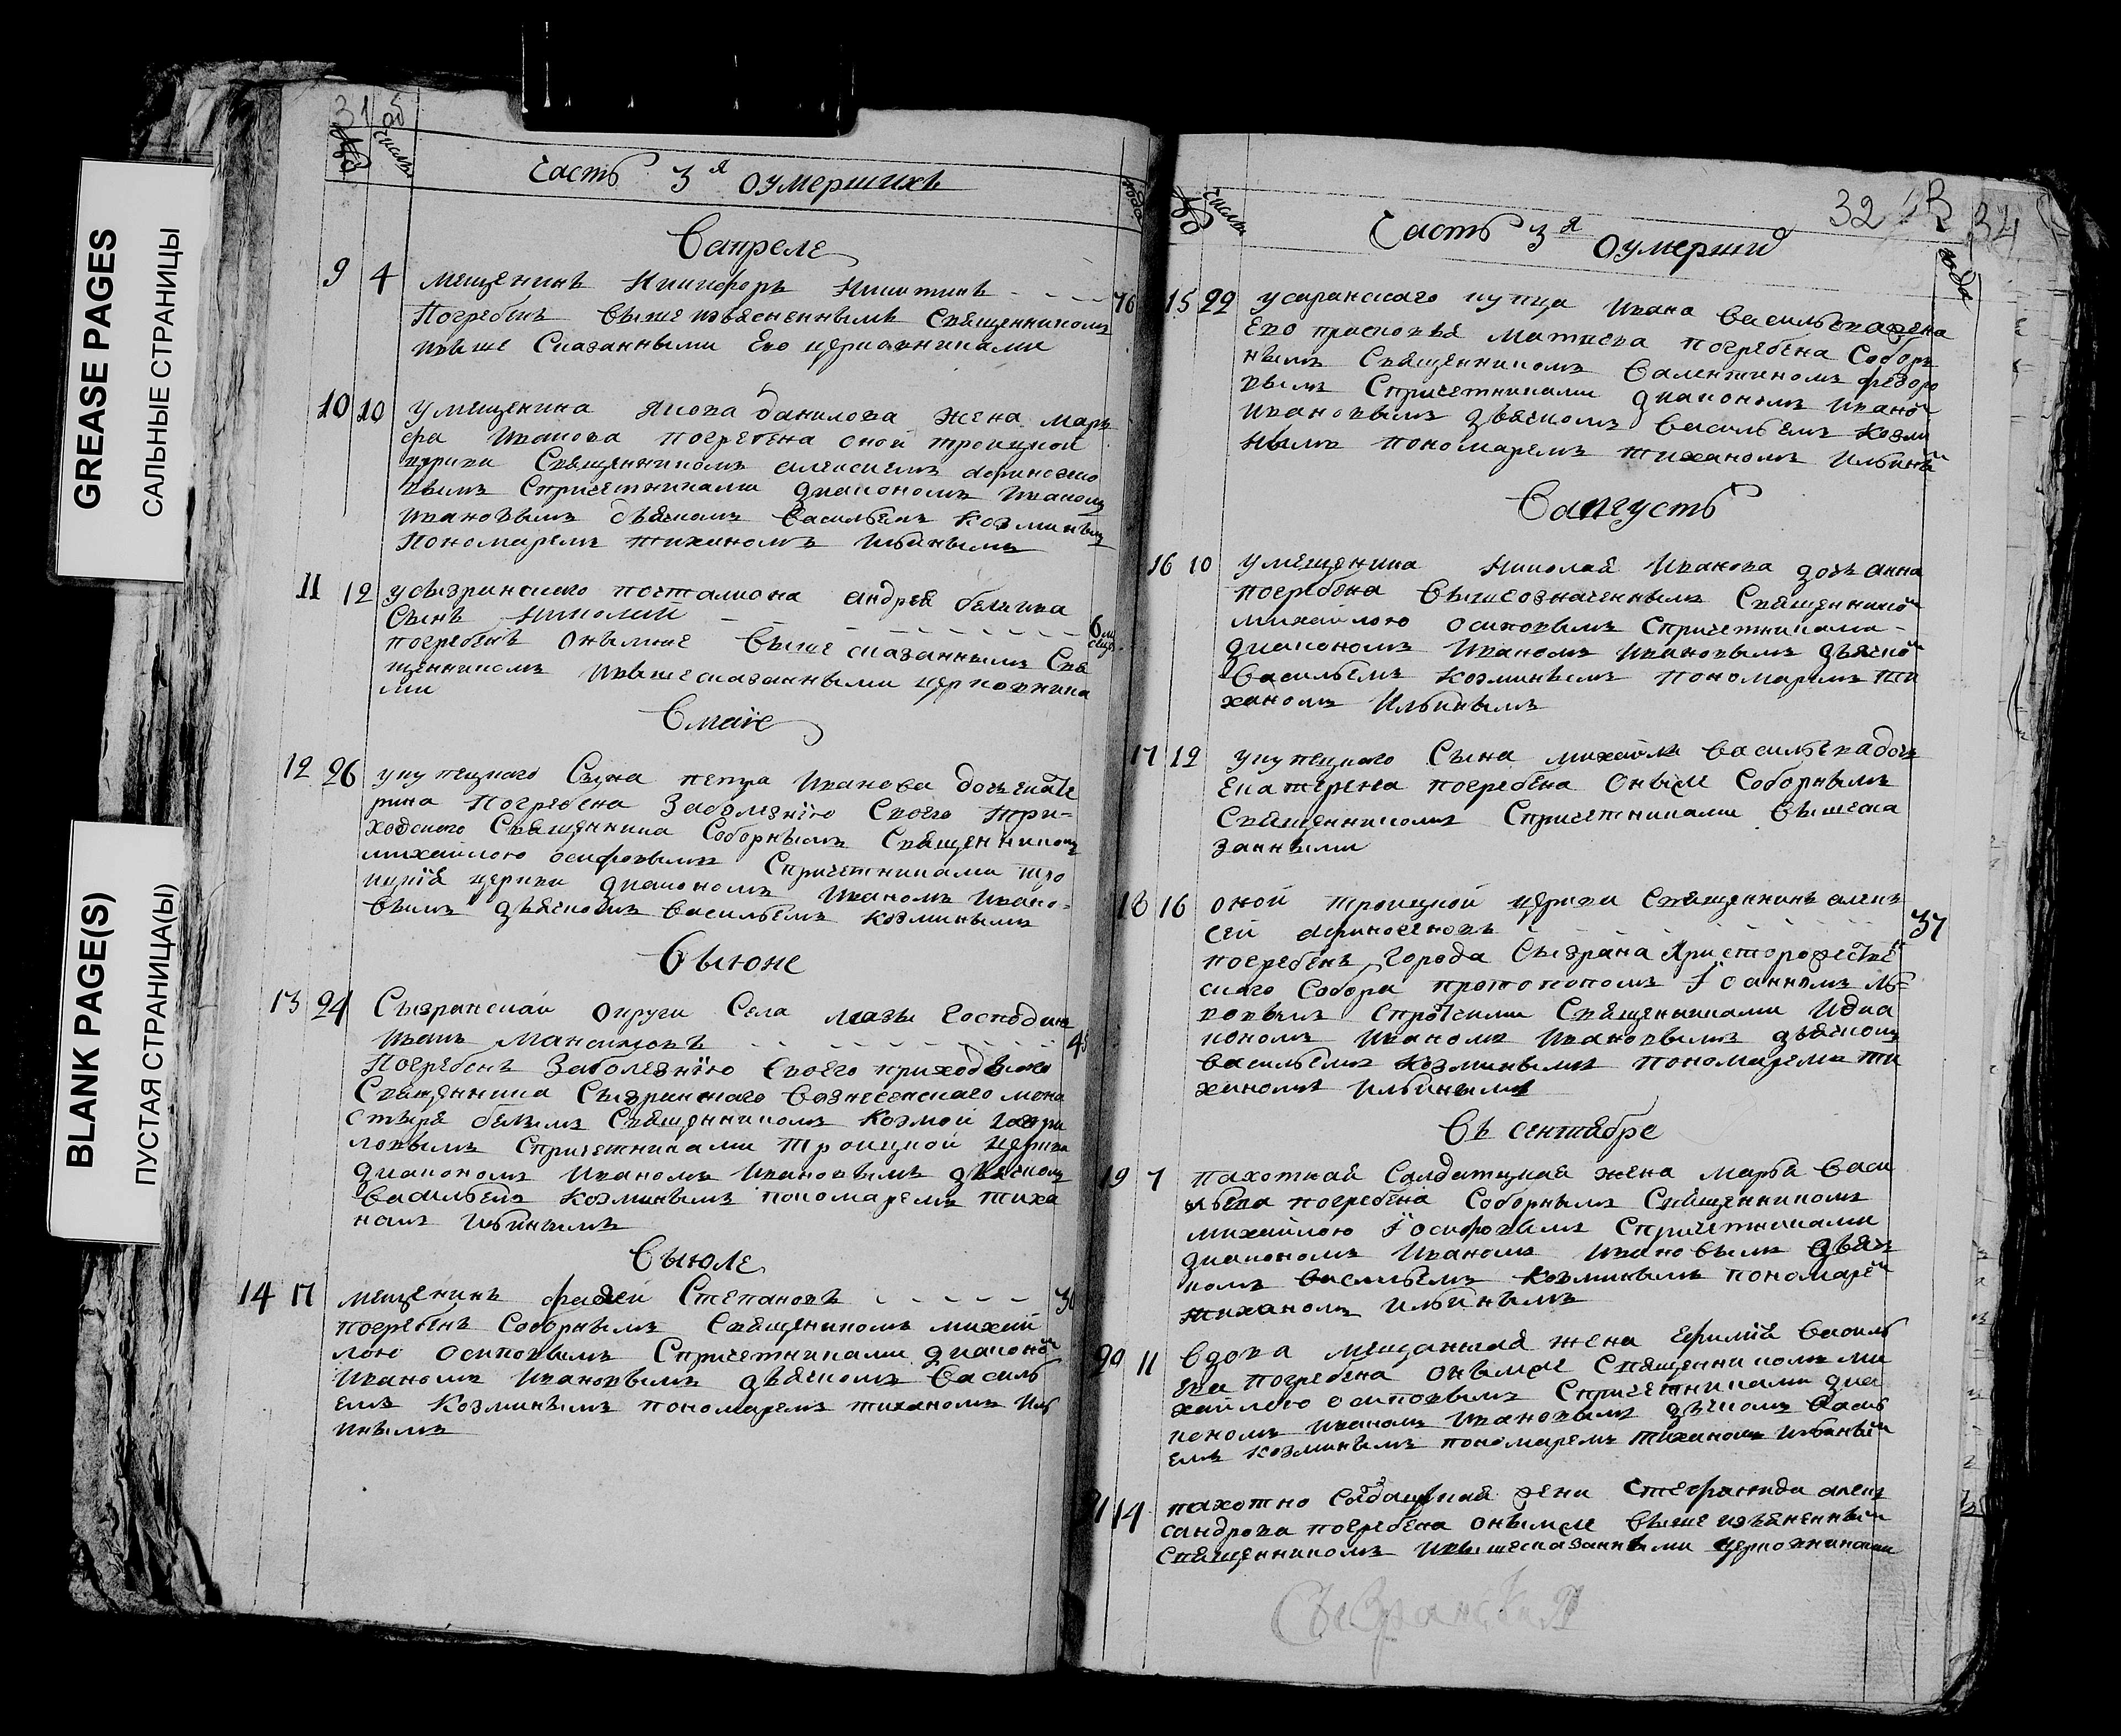 GREASE PAGES
САЛЬНЫЕ СТРАНИЦЫ
BLANK PAGE(S)
ПУСТАЯ СТРАНИЦА(Ы)
31
числы
Часть 3я оумершихъ
Вапреле
9 4 мещенинъ Никифоръ Никитинъ 76
Погребенъ вышеизъясненнымъ Священникомъ
ивыше Сказанными Его церковниками
10 10 умещенина Якова данилова жена марь
фа Иванова погребена оной троицкой
церкви Священникомъ алексиемъ афиногено
вымъ Спричетниками диакономъ Иваномъ
Ивановымъ дьячкомъ васильемъ козминымъ
Пономаремъ тиханомъ Ильинымъ
11 12 усызранского почталиона андрея
Сынъ Николай 6 ме
погребенъ онымже выше сказаннымъ Свя
щенникомъ ивышесказанными церковника
ми
Вмаие
12 26 укупецкого Сына петра Иванова дочь екате
рина Погребена Заболезнию Своего при-
ходского Священника Соборнымъ Священникомъ
михайлою осифовымъ Спричетниками тро
ицкия церкви диакономъ Иваномъ Ивано-
вымъ дьячкомъ васильемъ козминымъ
Выюне
13 24 Сызранской округи Села мазы Господинъ
Иванъ Максимовъ
Погребенъ Заболезнию Своего приходского
Священника Сызранского вознесенского мона
стыря белымъ Священникомъ козмой гаври
ловымъ Спричетниками троицкой церкви
диакономъ Иваномъ Ивановымъ дьячкомъ
васильемъ козминымъ пономаремъ тиха
номъ Ильинымъ
Выюле
14 17 мещенинъ фадей Степановъ
погребенъ Соборнымъ Священникомъ михай
лою осиповымъ Спричетниками диаконом
Иваномъ Ивановымъ дьячкомъ василь
емъ козминымъ пономаремъ тиханомъ Иль
инымъ
32 34
числы
года
Часть 3я оумерши
15 22 усаранскаго купца Ивана васильева жена
Его прасковья матвеева погребена Собор
нымъ Священникомъ валентиномъ федоро
вымъ Спричетниками диакономъ Иваном
Ивановымъ дьячкомъ васильемъ козми
нымъ пономаремъ тиханомъ Ильиным
Вавгусть
16 10 умещенина Николая Иванова дочь анна
погребена вышеозначеннымъ Священником
михайлою осиповымъ Спричетниками
диакономъ Иваномъ Ивановымъ дьячком
васильемъ козминымъ пономаремъ ти
ханомъ Ильинымъ
17 12 укупецкого Сына михайлы васильева дочь
Екатерена погребена Онымже Соборнымъ
Священникомъ Спричетниками вышеска
занными
18 16 оной троицкой церкви Священникъ алек
сей афиногеновъ 37
погребенъ города Сызрана Христорожестве
скаго Собора протопопомъ Iоанномъ
ковымъ Спротчими Священниками Идиа
кономъ Иваномъ Ивановымъ дьячкомъ
васильемъ козминымъ пономаремъ ти
ханомъ Ильинымъ
Въ сентябре
19 7 пахотная Салдатцкая жена марфа васи
льева погребена Соборнымъ Священникомъ
михайлою Iосифовымъ Спричетниками
диакономъ Иваномъ Ивановымъ дьяч
комъ васильемъ козминымъ пономарем
тиханомъ Ильинымъ
20 11 вдова мещанская жена Ефимия василь
ева погребена онымже Священникомъ ми
хайлою осиповымъ Спричетниками диа
кономъ Иваномъ Ивановымъ дьячкомъ василь
емъ козминымъ пономаремъ тиханомъ Ильиным
14 пахотно Салдацкая жена Стефанида алек
сандрова погребена онымже вышеизъясненным
Священникомъ ивышесказанными церковниками
Сызранскія